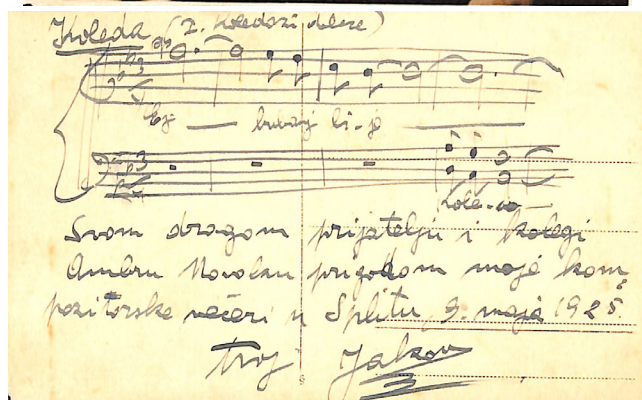 Koleda (I. Koledari dolaze)
Ej — bubanj bi-je —
Kole-do
Svom dragom prijatelju i kolegi
Ambru Novaku prigodom moje kom,
pozitorske večeri u Splitu, 9. maja 1925.
tvoj Jakov